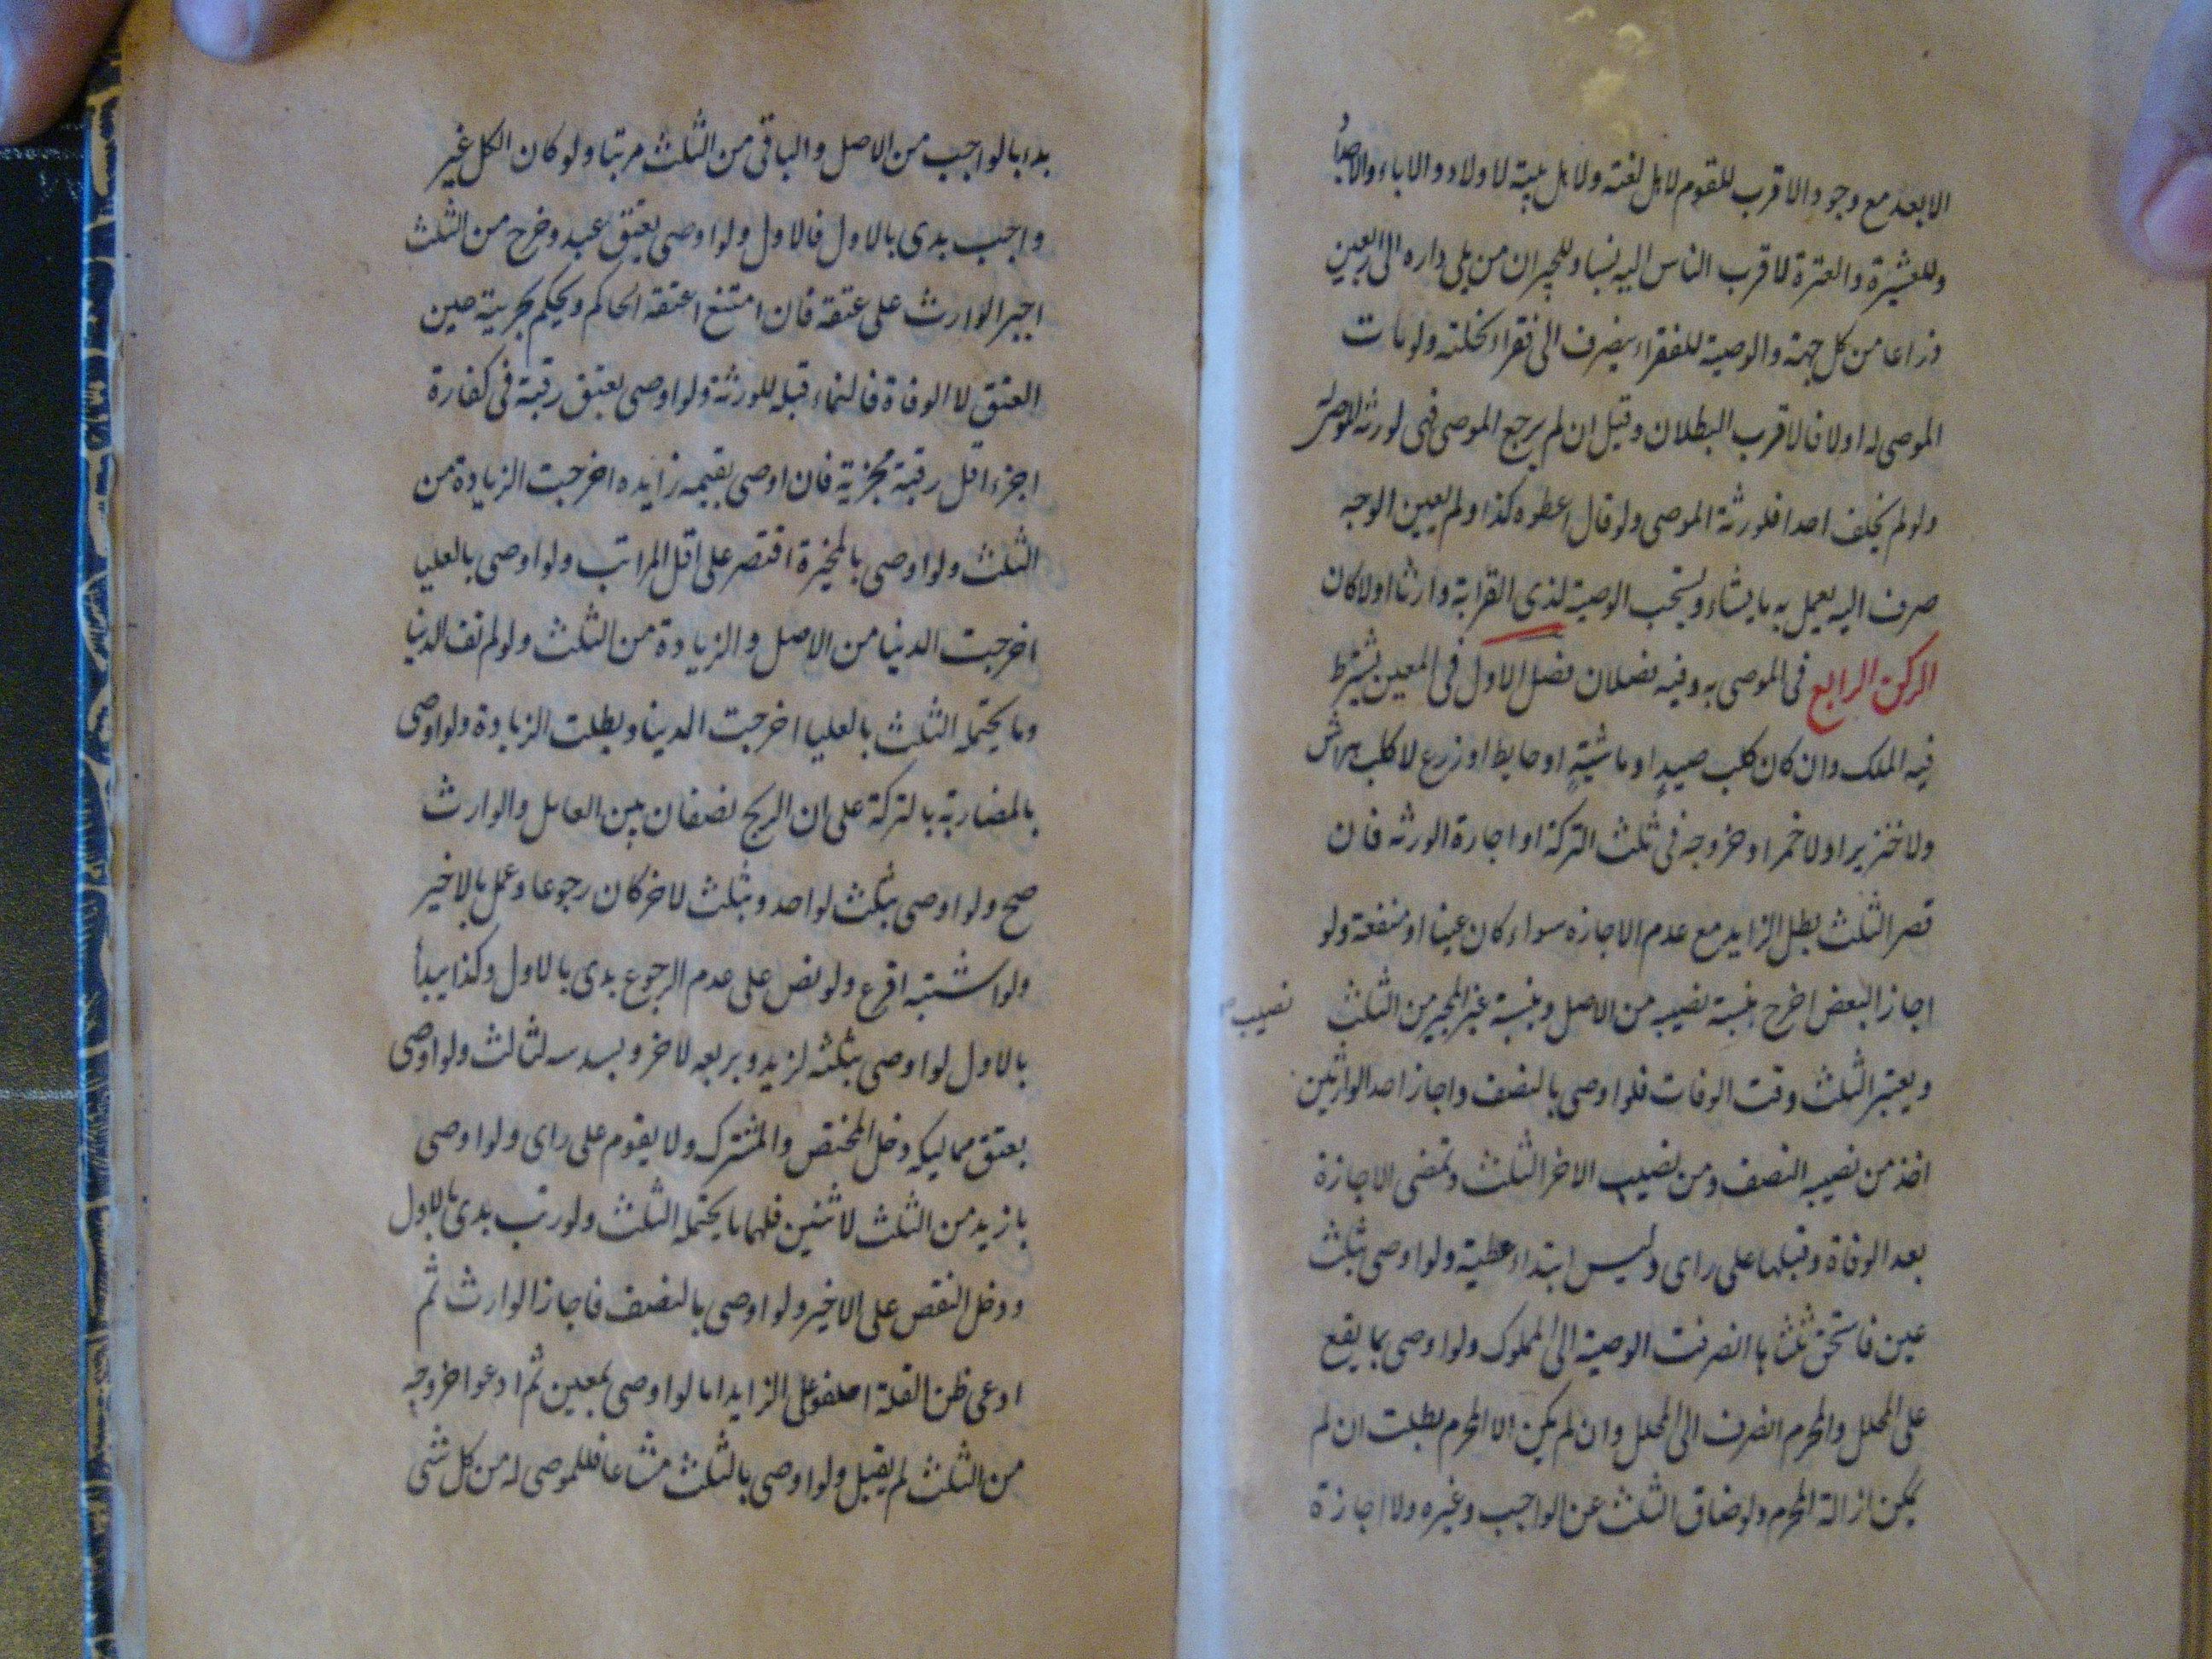 الابعد مع وجود الاقرب للقوم لاهل لغته ولاهل بيته لاولاد والاباء والاجداد
وللعشيرة والعترة لاقرب الناس اليه نسبا وللجيران من يلى داره الى اربعين
ذراعا من كل جهة والوصية للفقراء يصرف الى فقراء نحلته ولو مات
الموصى له اولا فالاقرب البطلان وقيل ان لم يرجع الموصى فهى لورثة الموصى له
ولو لم يخلف احدا فلورثة الموصى ولو قال اعطوه كذا ولم يعين الوجه
صرف اليه يعمل به ما يشاء ويستحب الوصية لذى القرابة وارثا اولا كان
الركن الرابع فى الموصى به وفيه فصلان فصل الاول فى المعين يشترط
فيه الملك وان كان كلب صيدٍ او ماشيةٍ او حايط او زرع لا كلب هراش
ولا خنزيرا ولا خمرا وخروجه فى ثلث التركة او اجازة الورثه فان
قصر الثلث بطل الزايد مع عدم الاجازه سواء كان عينا او منفعة ولو
اجاز البعض اخرج بنسبة نصيبه من الاصل وبنسبة غير المجيز من الثلث
نصيب
ويعتبر الثلث وقت الوفات فلو اوصى بالنصف واجاز احد الوارثين
اخذ من نصيبه النصف ومن نصيب الاخر الثلث وتمضى الاجازة
بعد الوفاة وقبلها على راى وليس ابتداء عطية ولو اوصى بثلث
عين فاستحق ثلثاها انصرفت الوصية الى المملوك ولو اوصى بما يقع
على المحلل والمحرم انصرف الى المحلل وان لم يكن الا المحرم بطلت ان لم
يمكن ازالة المحرم ولو ضاق الثلث عن الواجب وغيره ولا اجازة
بدء بالواجب من الاصل والباقى من الثلث مرتبا ولو كان الكل غير
واجب بدى بالاول فالاول ولو اوصى بعتق عبد وخرج من الثلث
اجبر الوارث على عتقه فان امتنع اعتقه الحاكم ويحكم بحريته حين
العتق لا الوفاة فالنماء قبله للورثة ولو اوصى بعتق رقبة فى كفارة
اجزء اقل رقبة مجزية فان اوصى بقيمه زايده اخرجت الزيادة من
الثلث ولو اوصى بالمخيرة اقتصر على اقل المراتب ولو اوصى بالعليا
اخرجت الدنيا من الاصل والزيادة من الثلث ولو لم تف الدنيا
وما يحتمله الثلث بالعليا اخرجت الدنيا وبطلت الزيادة ولو اوصى
بالمضاربة بالتركة على ان الربح نصفان بين العامل والوارث
صح ولو اوصى بثلث لواحد وبثلث لاخر كان رجوعا وعمل بالاخير
ولو اشتبه اقرع ولو نص على عدم الرجوع بدى بالاول وكذا يبدأ
بالاول لو اوصى بثلثه لزيد وبربعه لاخر وبسدسه لثالث ولو اوصى
بعتق مماليكه دخل المختص والمشترك ولا يقوم على راى ولو اوصى
بازيد من الثلث لاثنين فلهما ما يحتمله الثلث ولو رتب بدى بالاول
ودخل النقص على الاخير ولو اوصى بالنصف فاجاز الوارث ثم
ادعى ظن القلة احلفو على الزايد اما لو اوصى بمعين ثم ادعوا خروجه
من الثلث لم يقبل ولو اوصى بالثلث مشاعا فللموصى له من كل شى